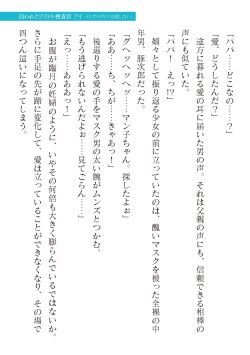 囚われたアイドル捜査官 アイ
「パパ……どこなの……？」
「愛、どうしたんだ？」
「パパ！　えっ？」
途方に暮れる愛の耳に届いた男の声。それは父親の声にも、信頼できる相棒の
声にも似ていた。
嬉々として振り返る少女の前に立っていたのは、醜いマスクを被った全裸の中
年男、豚次郎だった。
「グヘッヘッヘッ……マン子ちゃん。探したよぉ」
「ああっ、ち、ちが……きゃあっ！」
後返りする愛の手をマスク男の太い腕がムンズとつかむ。
「もう逃げられないんだよぉ……見てごらん……」
「えっ……あああっ！」
お腹が臨月の妊婦のように、いやその何倍も大きく膨らんでいるではないか。
さらに手足の先が蹄に変化して、愛は立っていることができなくなり、その場で
四つん這いになってしまう。